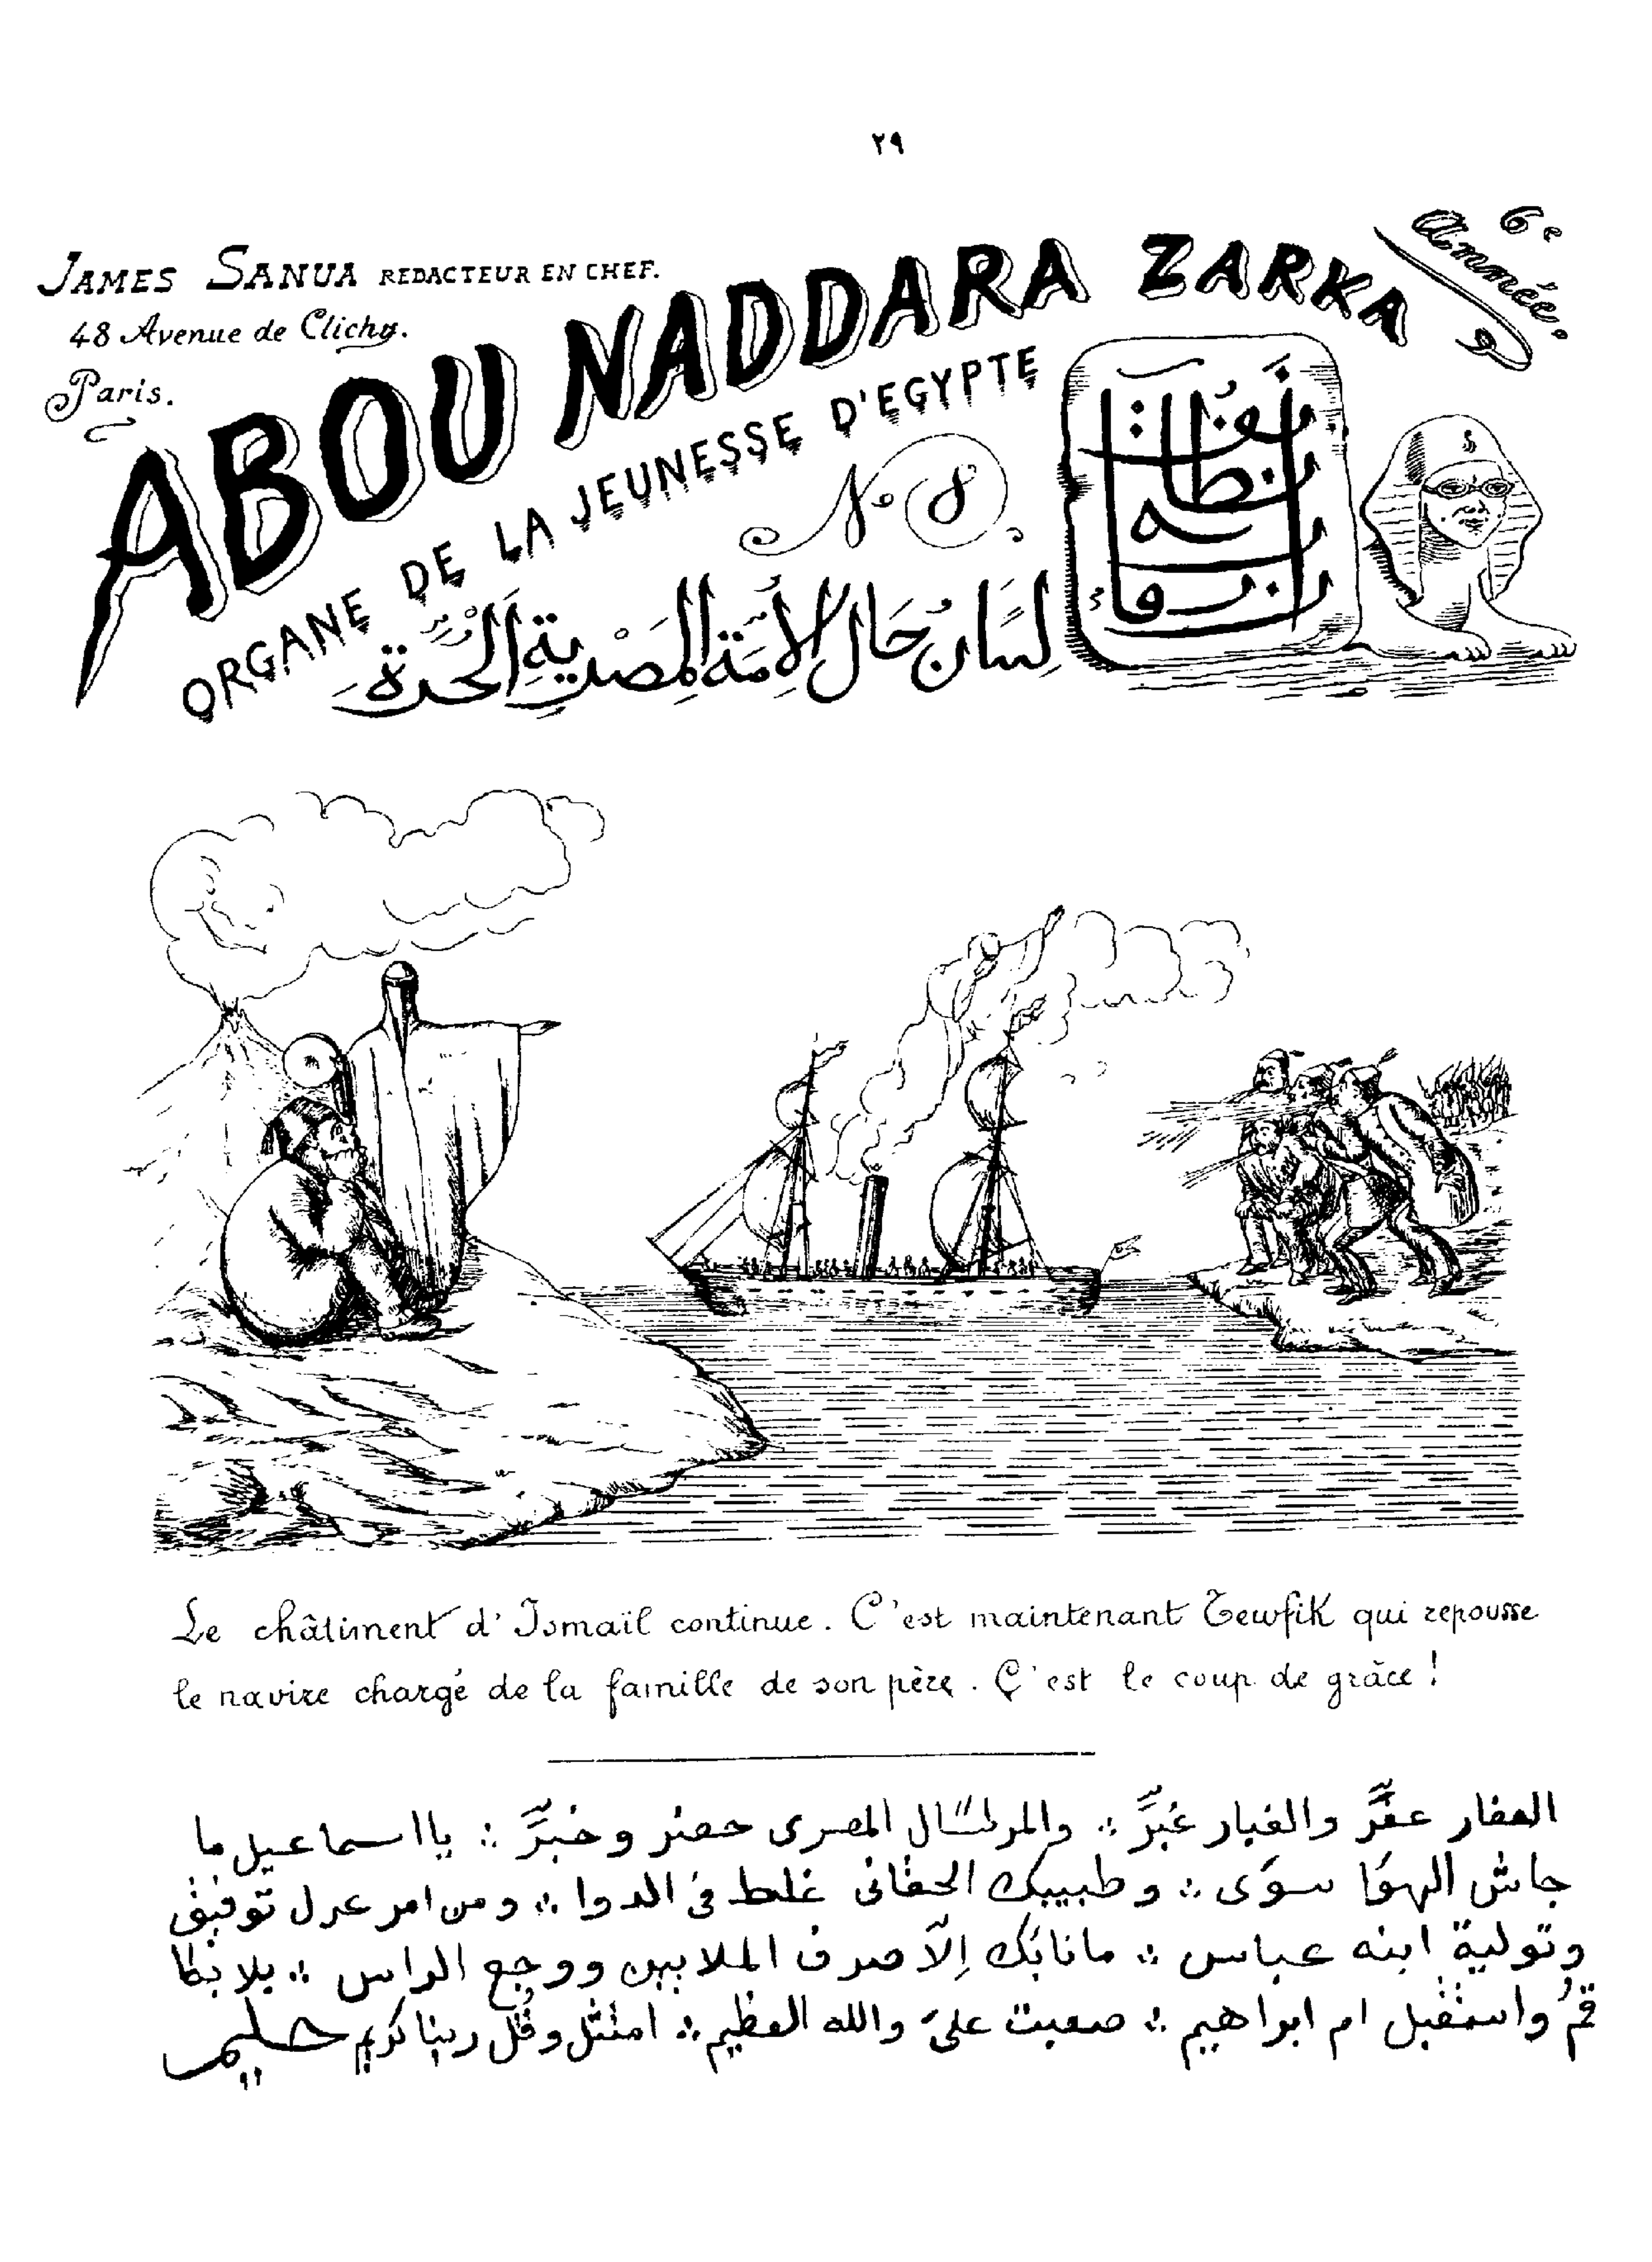 ٢٩
JAMES SANUA REDACTEUR EN CHEF.
48 Avenue de Clichy.
Paris.
6e Année.
ABOU NADDARA ZARKA
ORGANE DE LA JEUNESSE D'EGYPTE
No 8
لِسَان حَال الأُمَّة المِصْرية الحُرَّة
Le châtiment d'Ismaïl continue. C'est maintenant Tewfik qui repousse
le navire chargé de la famille de son père. C'est le coup de grâce!
العفار عفَّر والغبار غبَّر ⁂ والمرسال المصرى حضر وخبَّر ⁂ يا اسماعيل ما
جاش الهوَا سوَى ⁂ وطبيبك الحقانى غلط فى الدوا ⁂ ومن امر عزل توفيق
وتولية ابنه عباس ⁂ مانابَك اِلاّ صرف الملايين ووجع الراس ⁂ يلا بقا
قمُ واستقبل ام ابراهيم ⁂ صعبت علىَّ والله العظيم ⁂ امتثل وقُل ربنا كريم حليم